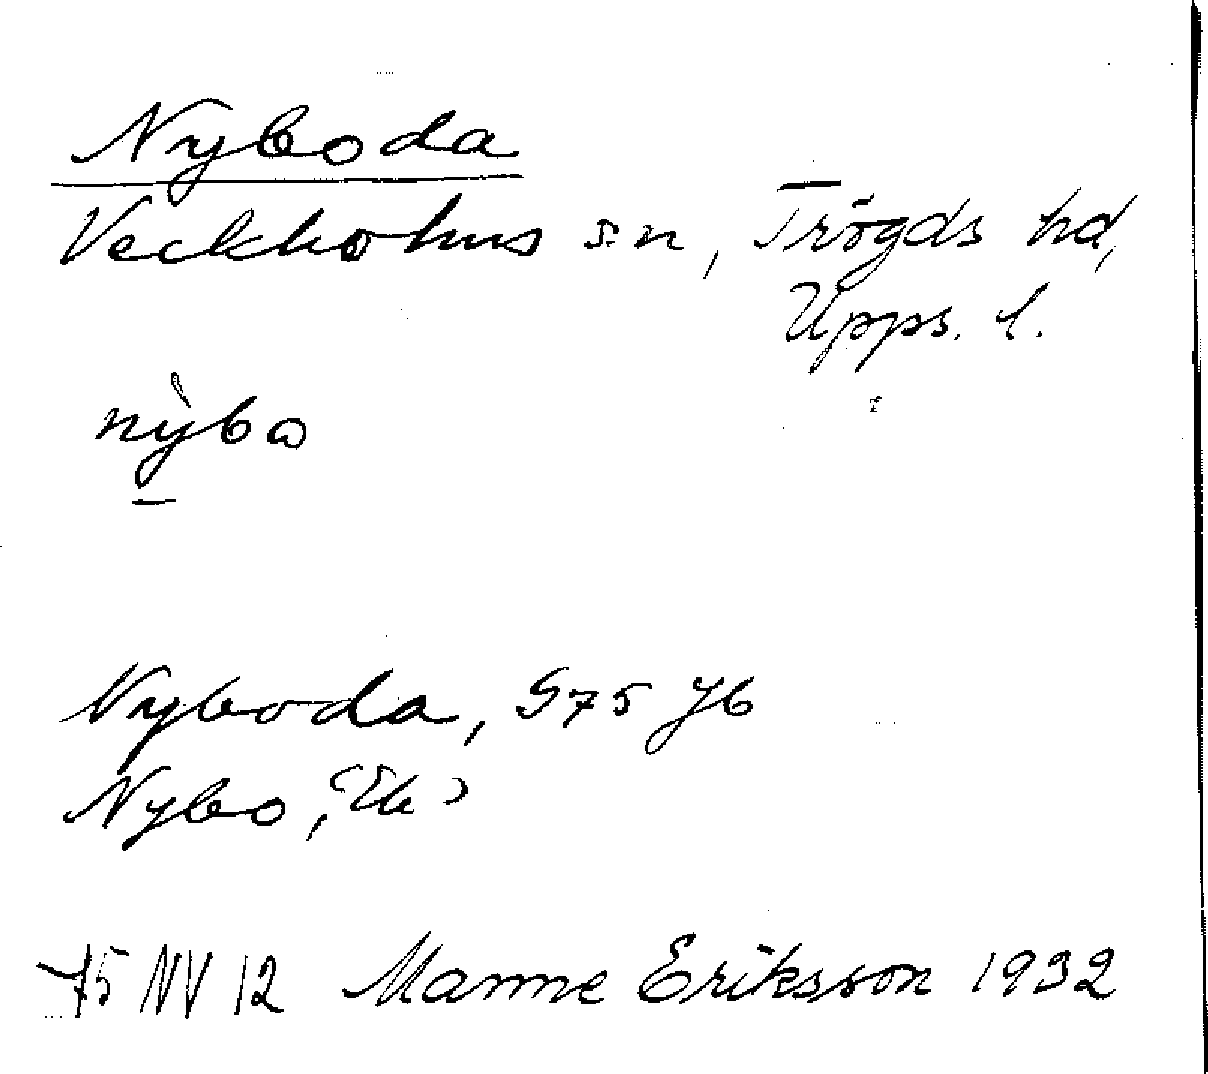 Nyboda
Veckholms sn, Trögds hd,
Upps. l.
nỳbo
Nyboda, G75 Jb
Nybo, (Ek)
75 NV 12 Manne Eriksson 1932